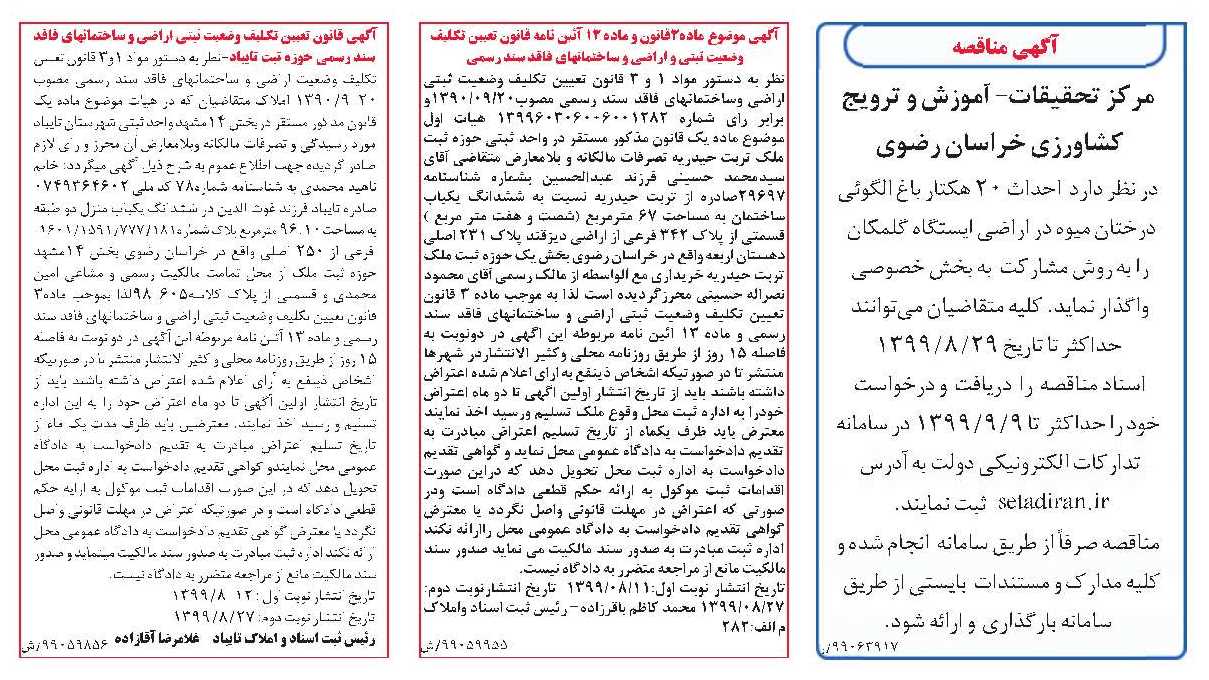 آگهی مناقصه
مرکز تحقیقات- آموزش و ترویج
کشاورزی خراسان رضوی
در نظر دارد احداث ۲۰ هکتار باغ الگوئی
درختان میوه در اراضی ایستگاه گلمکان
را به روش مشارکت به بخش خصوصی
واگذار نماید. کلیه متقاضیان می‌توانند
حداکثر تا تاریخ ۱۳۹۹/۸/۲۹
اسناد مناقصه را دریافت و درخواست
خود را حداکثر تا ۱۳۹۹/۹/۹ در سامانه
تدارکات الکترونیکی دولت به آدرس
setadiran.ir ثبت نمایند.
مناقصه صرفاً از طریق سامانه انجام شده و
کلیه مدارک و مستندات بایستی از طریق
سامانه بارگذاری و ارائه شود.
۹۹۰۶۳۹۱۷/
آگهی موضوع ماده۳قانون و ماده ۱۳ آئین نامه قانون تعیین تکلیف
وضعیت ثبتی و اراضی و ساختمانهای فاقد سند رسمی
نظر به دستور مواد ۱ و ۳ قانون تعیین تکلیف وضعیت ثبتی
اراضی وساختمانهای فاقد سند رسمی مصوب۱۳۹۰/۰۹/۲۰و
برابر رای شماره ۱۳۹۹۶۰۳۰۶۰۰۶۰۰۱۲۸۲ هیات اول
موضوع ماده یک قانون مذکور مستقر در واحد ثبتی حوزه ثبت
ملک تربت حیدریه تصرفات مالکانه و بلامعارض متقاضی آقای
سیدمحمد حسینی فرزند عبدالحسین بشماره شناسنامه
۲۹۶۹۷صادره از تربت حیدریه نسبت به ششدانگ یکباب
ساختمان به مساحت ۶۷ مترمربع (شصت و هفت متر مربع )
قسمتی از پلاک ۳۴۲ فرعی از اراضی دیزقند پلاک ۲۳۱ اصلی
دهستان اربعه واقع در خراسان رضوی بخش یک حوزه ثبت ملک
تربت حیدریه خریداری مع الواسطه از مالک رسمی آقای محمود
نصراله حسینی محرزگردیده است لذا به موجب ماده ۳ قانون
تعیین تکلیف وضعیت ثبتی اراضی و ساختمانهای فاقد سند
رسمی و ماده ۱۳ ائین نامه مربوطه این اگهی در دونوبت به
فاصله ۱۵ روز از طریق روزنامه محلی وکثیر الانتشاردر شهرها
منتشر تا در صورتیکه اشخاص ذینفع به ارای اعلام شده اعتراض
داشته باشند باید از تاریخ انتشار اولین آگهی تا دو ماه اعتراض
خودرا به اداره ثبت محل وقوع ملک تسلیم ورسید اخذ نمایند
معترض باید ظرف یکماه از تاریخ تسلیم اعتراض مبادرت به
تقدیم دادخواست به دادگاه عمومی محل نماید و گواهی تقدیم
دادخواست به اداره ثبت محل تحویل دهد که دراین صورت
اقدامات ثبت موکول به ارائه حکم قطعی دادگاه است ودر
صورتی که اعتراض در مهلت قانونی واصل نگردد یا معترض
گواهی تقدیم دادخواست به دادگاه عمومی محل راارائه نکند
اداره ثبت مبادرت به صدور سند مالکیت می نماید صدور سند
مالکیت مانع از مراجعه متضرر به دادگاه نیست.
تاریخ انتشار نوبت اول:۱۳۹۹/۰۸/۱۱ تاریخ انتشارنوبت دوم:
۱۳۹۹/۰۸/۲۷ محمد کاظم باقرزاده – رئیس ثبت اسناد واملاک
م الف:۲۸۲
۹۹۰۵۹۹۵۵/ش
آگهی قانون تعیین تکلیف وضعیت ثبتی اراضی و ساختمانهای فاقد
سند رسمی حوزه ثبت تایباد-نظر به دستور مواد ۱و۳ قانون تعیین
تکلیف وضعیت اراضی و ساختمانهای فاقد سند رسمی مصوب
۱۳۹۰/۹/۲۰ املاک متقاضیان که در هیات موضوع ماده یک
قانون مذکور مستقر دربخش ۱۴مشهدواحد ثبتی شهرستان تایباد
مورد رسیدگی و تصرفات مالکانه وبلامعارض آن محرز و رای لازم
صادر گردیده جهت اطلاع عموم به شرح ذیل آگهی میگردد: خانم
ناهید محمدی به شناسنامه شماره۷۸ کد ملی ۰۷۴۹۳۶۴۶۰۲
صادره تایباد فرزند غوث الدین در ششدانگ یکباب منزل دو طبقه
به مساحت ۹۶.۱۰ مترمربع پلاک شماره۱۶۰۱/۱۵۹۱/۷۷۷/۱۸۱
فرعی از ۲۵۰ اصلی واقع در خراسان رضوی بخش ۱۴مشهد
حوزه ثبت ملک از محل تمامت مالکیت رسمی و مشاعی امین
محمدی و قسمتی از پلاک کلاسه۶۰۵ ۹۸لذا بموجب ماده۳
قانون تعیین تکلیف وضعیت ثبتی اراضی و ساختمانهای فاقد سند
رسمی و ماده ۱۳ آئین نامه مربوطه این آگهی در دو نوبت به فاصله
۱۵ روز از طریق روزنامه محلی و کثیر الانتشار منتشر تا در صورتیکه
اشخاص ذینفع به آرای اعلام شده اعتراض داشته باشند باید از
تاریخ انتشار اولین آگهی تا دو ماه اعتراض خود را به این اداره
تسلیم و رسید اخذ نمایند. معترضین باید ظرف مدت یک ماه از
تاریخ تسلیم اعتراض مبادرت به تقدیم دادخواست به دادگاه
عمومی محل نمایندو گواهی تقدیم دادخواست به اداره ثبت محل
تحویل دهد که در این صورت اقدامات ثبت موکول به ارایه حکم
قطعی دادگاه است و در صورتیکه اعتراض در مهلت قانونی واصل
نگردد یا معترض گواهی تقدیم دادخواست به دادگاه عمومی محل
ارائه نکند اداره ثبت مبادرت به صدور سند مالکیت مینماید و صدور
سند مالکیت مانع از مراجعه متضرر به دادگاه نیست.
تاریخ انتشار نوبت اول: ۱۲ ۱۳۹۹/۸
تاریخ انتشار نوبت دوم: ۱۳۹۹/۸/۲۷
رئیس ثبت اسناد و املاک تایباد غلامرضا آقازاده
۹۹۰۵۹۸۵۶/ش